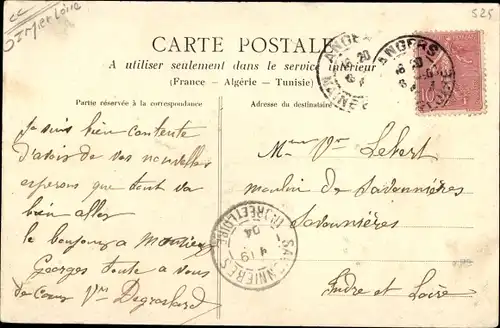 Indre et Loire
525
CARTE POSTALE
A utiliser seulement dans le service intérieur
(France - Algérie - Tunisie)
Partie réservée à la correspondance
Adresse du destinataire
ANGERS
ANGERS
Je suis bien contente
d'avoir de vos nouvelles
esperons que tout va
bien aller
le bonjour à Monsieur
Georges toute a vous
de Coeur Vve
Mme Vve Lebert
moulin de Savonnières
Savonnières
Indre et Loire
SAVONNIERES
(INDRE ET LOIRE)
04